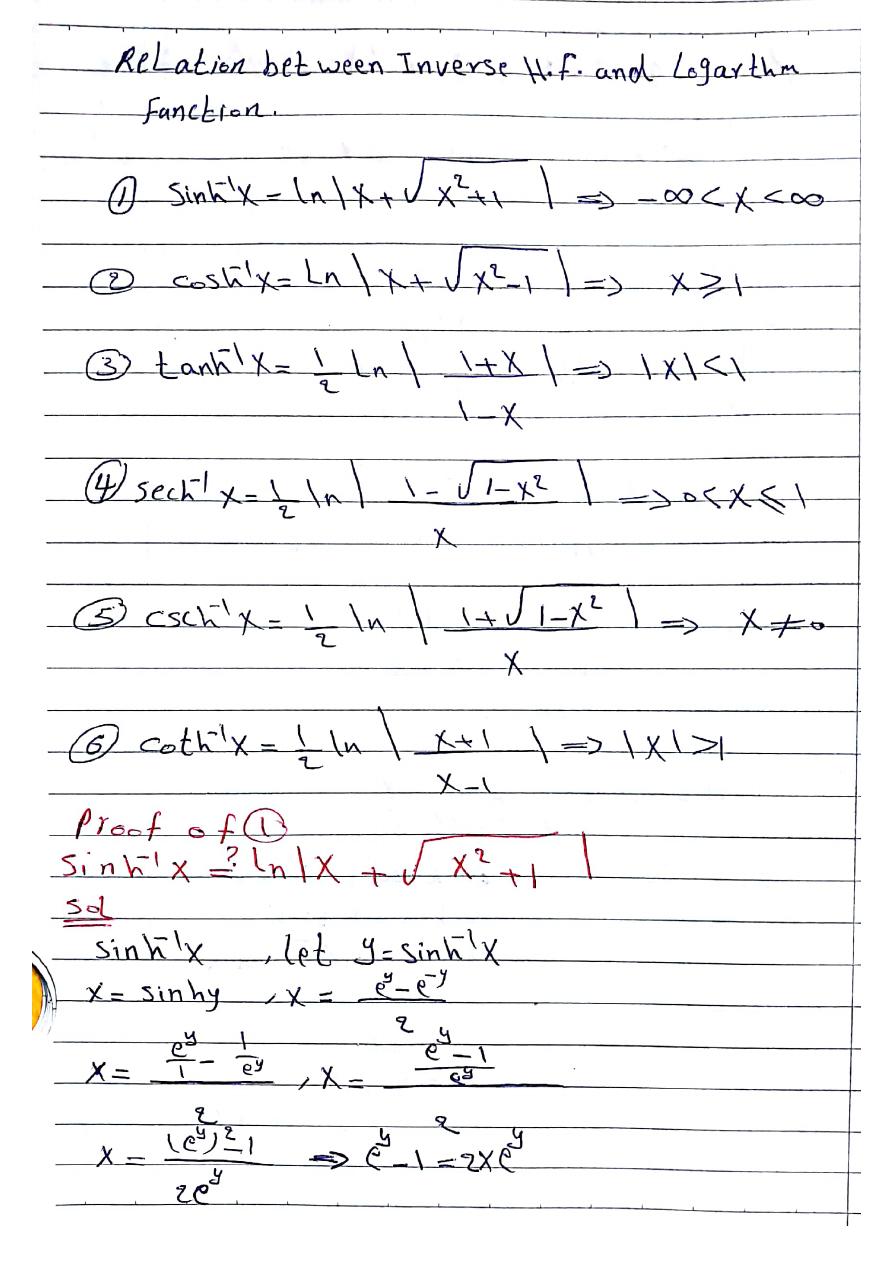 Relation between Inverse H.f. and Logarthm
Function.
① Sinh⁻¹x = ln|x + √(x²+1)| ⇒ -∞ < x < ∞
② cosh⁻¹x = Ln|x + √(x²-1)| ⇒ x ≥ 1
③ tanh⁻¹x = 1/2 Ln|(1+x)/(1-x)| ⇒ |x| < 1
④ sech⁻¹x = 1/2 ln|(1-√(1-x²))/x| ⇒ 0 < x ≤ 1
⑤ csch⁻¹x = 1/2 ln|(1+√(1-x²))/x| ⇒ x ≠ 0
⑥ coth⁻¹x = 1/2 ln|(x+1)/(x-1)| ⇒ |x| > 1
Proof of ①
Sinh⁻¹x =? Ln|x + √(x²+1)|
Sol
Sinh⁻¹x , let y = sinh⁻¹x
x = sinhy , x = (e^y - e^-y)/2
x = (e^y/1 - 1/e^y)/2 , x = ((e^y - 1)/e^y)/2
x = ((e^y)² - 1)/(2e^y) ⇒ e^y - 1 = 2xe^y